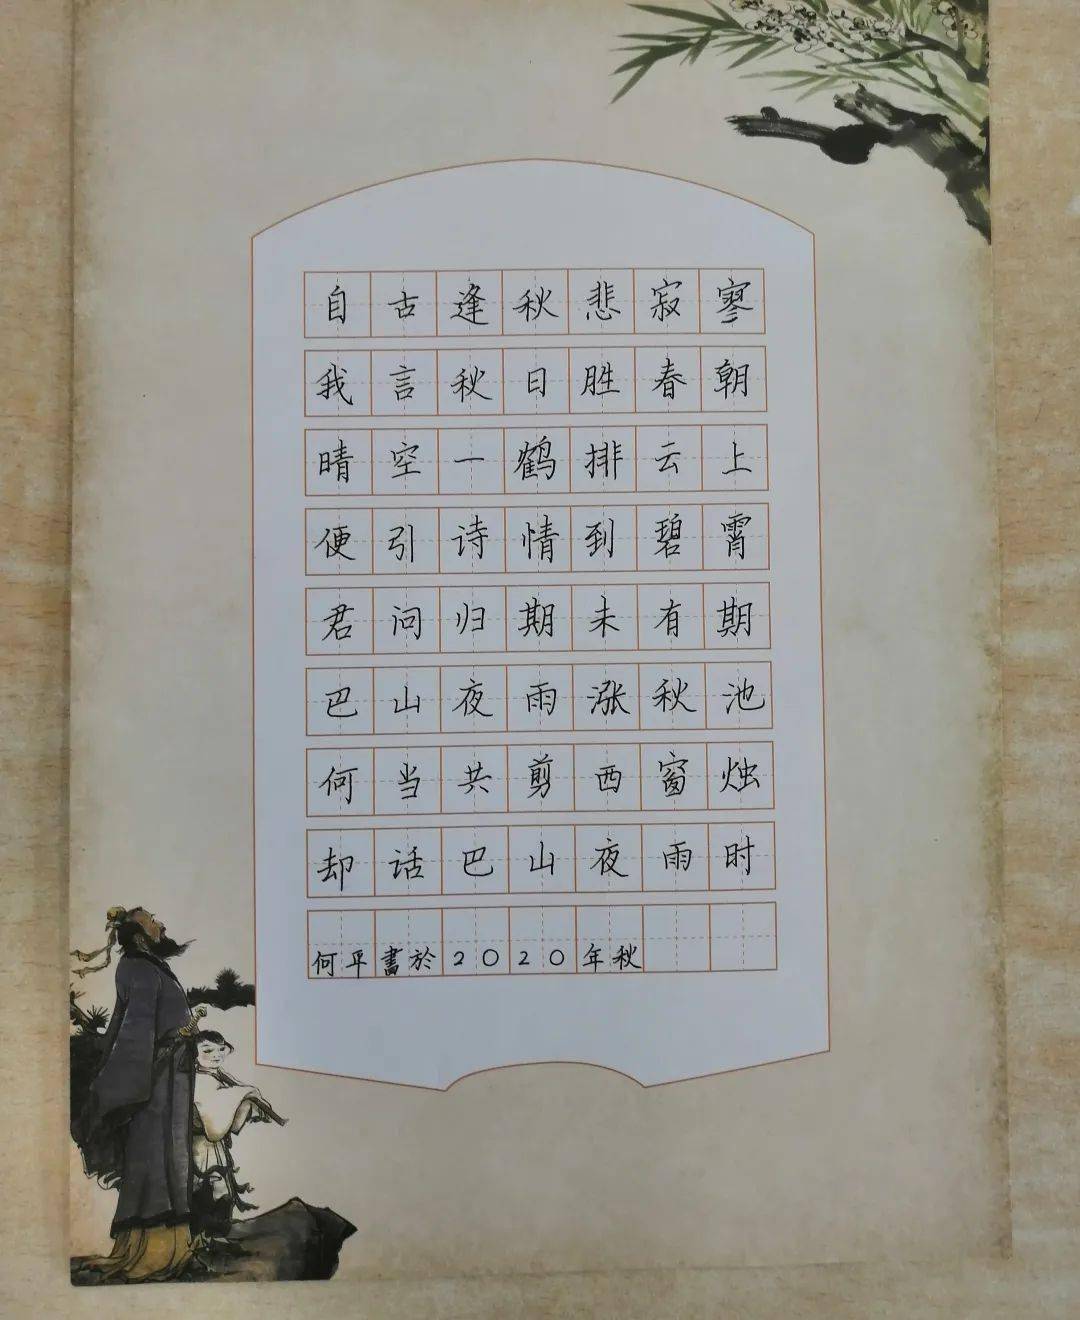 自古逢秋悲寂寥
我言秋日胜春朝
晴空一鹤排云上
便引诗情到碧霄
君问归期未有期
巴山夜雨涨秋池
何当共剪西窗烛
却话巴山夜雨时
何平書於2020年秋